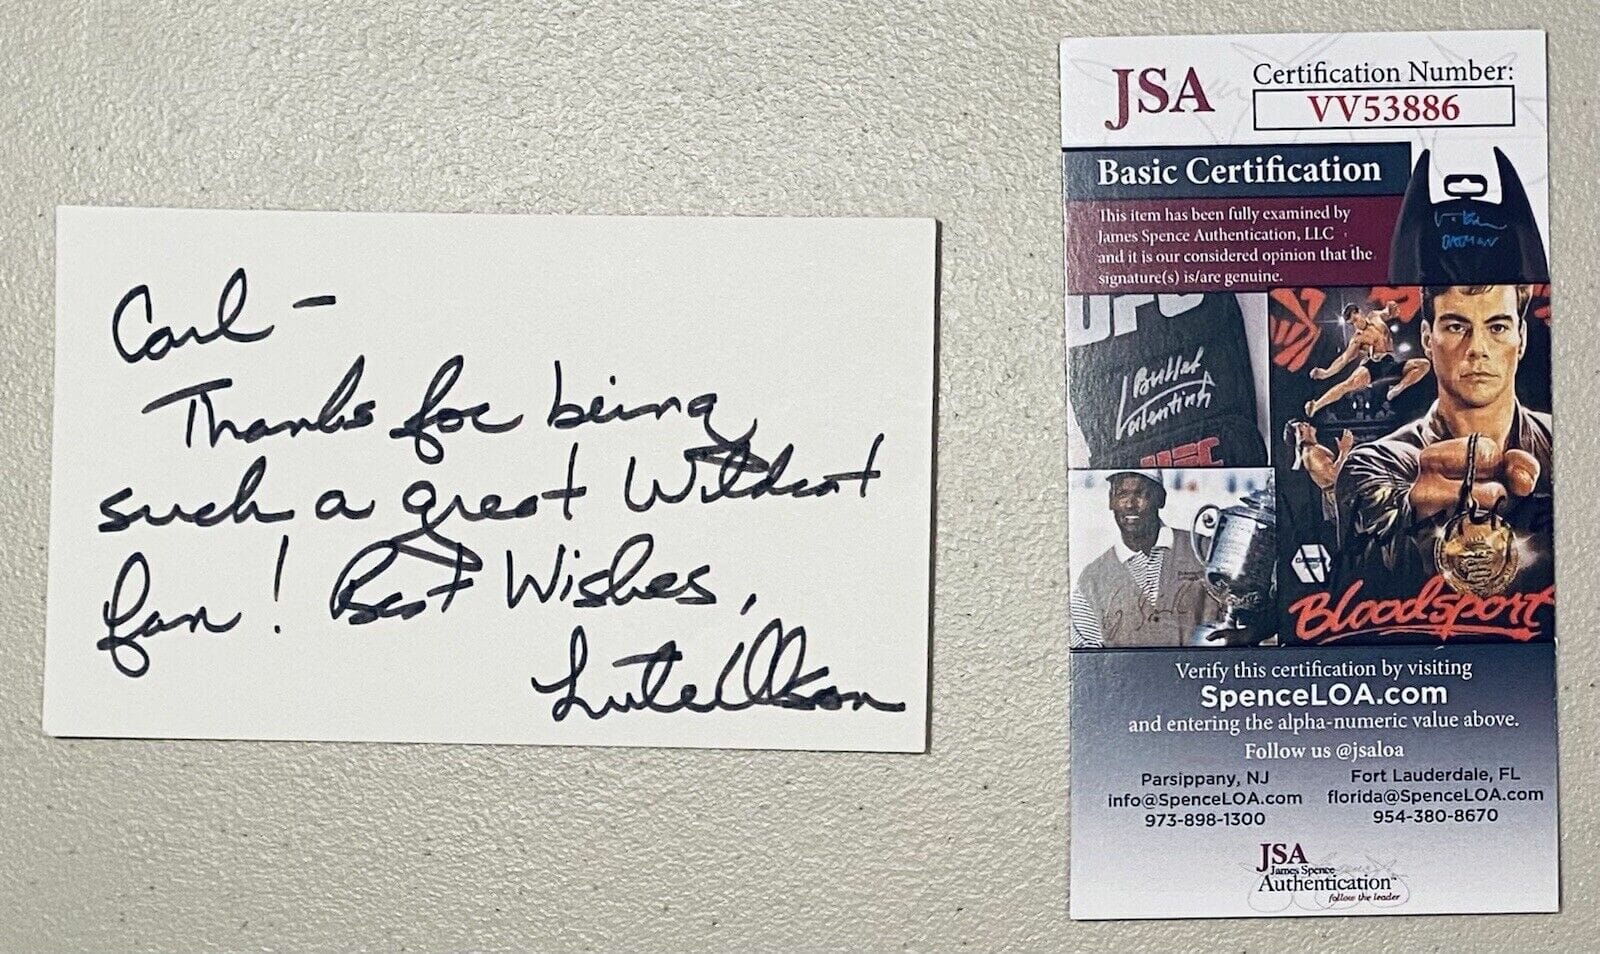 Carl -
Thanks for being
such a great Wildcat
fan! Best Wishes,
Lute Olson
JSA
Certification Number:
VV53886
Basic Certification
This item has been fully examined by
James Spence Authentication, LLC
and it is our considered opinion that the
signature(s) is/are genuine.
UFC
Bullet
Valentina
UFC
Bloodsport
Verify this certification by visiting
SpenceLOA.com
and entering the alpha-numeric value above.
Follow us @jsaloa
Parsippany, NJ
info@SpenceLOA.com
973-898-1300
Fort Lauderdale, FL
florida@SpenceLOA.com
954-380-8670
JSA
James Spence
Authentication™
follow the leader